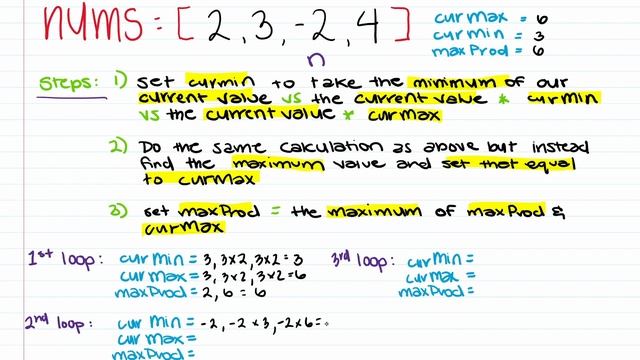 nums = [ 2, 3, -2, 4 ]
curmax = 6
curmin = 3
maxProd = 6
n
Steps: 1) set curmin to take the minimum of our
current value vs the current value * curmin
vs the current value * curmax
2) Do the same calculation as above but instead
find the maximum value and set that equal
to curmax
3) set maxProd = the maximum of maxProd &
curmax
1st loop: curmin = 3, 3x2, 3x2 = 3
curmax = 3, 3x2, 3x2 = 6
maxProd = 2, 6 = 6
3rd loop: curmin =
curmax =
maxProd =
2nd loop: curmin = -2, -2 x 3, -2 x 6 =
curmax =
maxProd =